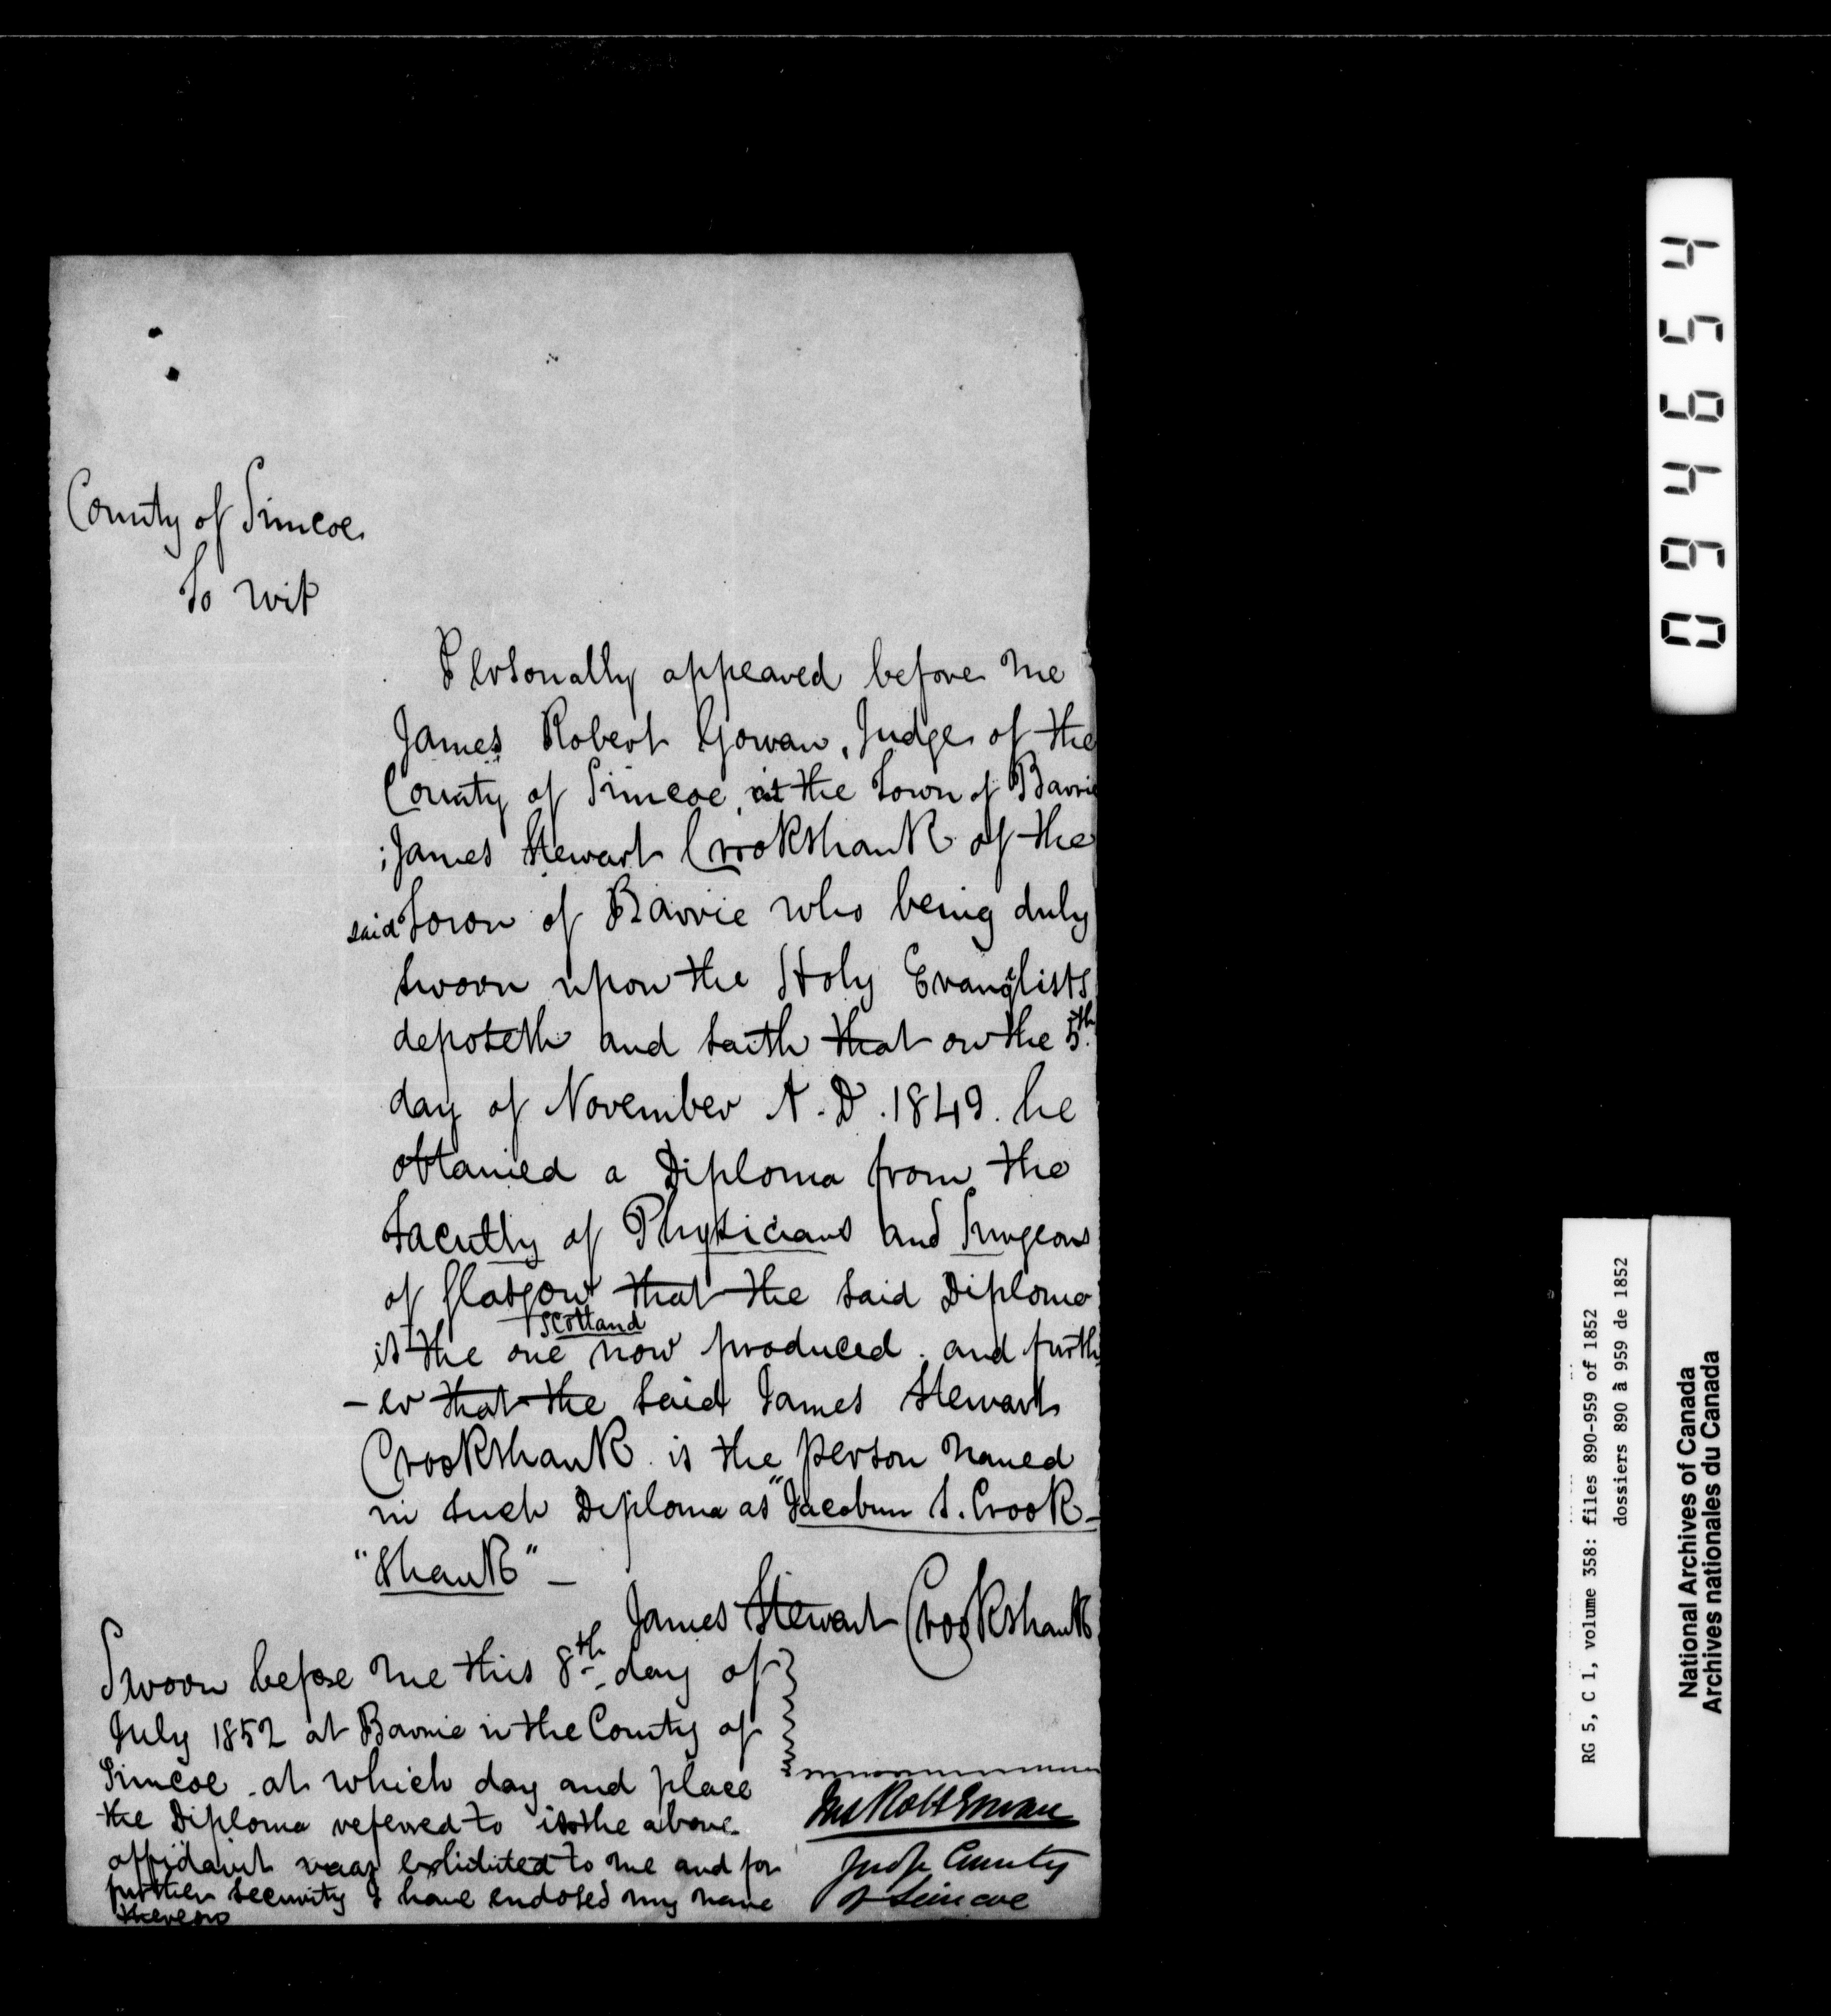 County of Simcoe
To wit
Personally appeared before me
James Robert Gowan, Judge of the
County of Simcoe, at the Town of Barrie
; James Stewart Crookshank of the
said Town of Barrie who being duly
sworn upon the Holy Evangelists
deposeth and saith that on the 5th
day of November A.D. 1849. he
obtained a Diploma from the
Faculty of Physicians and Surgeons
of Glasgow that the said Diploma
Scotland
is the one now produced. and furth
-er that the said James Stewart
Crookshank is the person named
in such Diploma as "Jacobum S. Crook-
"shank" -
James Stewart Crookshank
Sworn before me this 8th day of
July 1852 at Barrie in the County of
Simcoe. at which day and place
the Diploma referred to in the above
affidavit was exhibited to me and for
further security I have endosed my name
thereon
Jas Robt Gowan
Judge County
of Simcoe
094654
RG 5, C 1, volume 358: files 890-959 of 1852
dossiers 890 à 959 de 1852
National Archives of Canada
Archives nationales du Canada